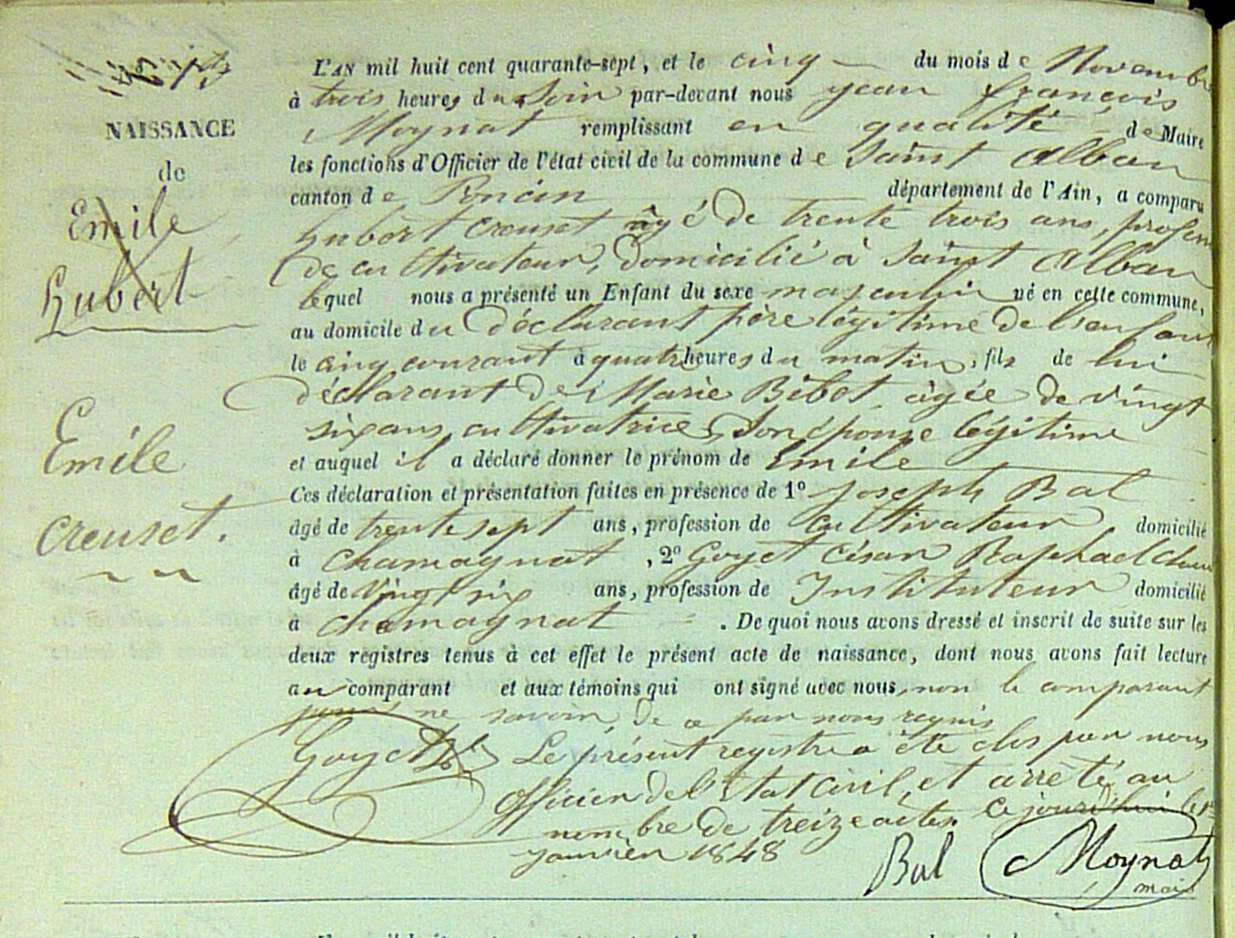 NAISSANCE
de
Emile
hubert
Emile
creuset.
L'AN mil huit cent quarante-sept, et le cinq du mois de Novembre
à trois heures du Soir par-devant nous jean françois
Moynat remplissant en qualité de Maire
les fonctions d'Officier de l'état civil de la commune de Saint Alban
canton de Poncin département de l'Ain, a comparu
hubert Creuset âgé de trente trois ans, profession
de cultivateur, domicilié à Saint Alban
lequel nous a présenté un Enfant du sexe masculin né en cette commune,
au domicile du déclarant père légitime de l'enfant
le cinq courant à quatre heures du matin, fils de lui
déclarant de Marie Bibot âgée de vingt
six ans, cultivatrice, Son épouse légitime
et auquel il a déclaré donner le prénom de Emile
Ces déclaration et présentation faites en présence de 1º Joseph Bal
âgé de trente sept ans, profession de Cultivateur, domicilié
à chamagnat, 2º Goyet César Raphael
âgé de Vingt six ans, profession de Instituteur domicilié
à chamagnat. De quoi nous avons dressé et inscrit de suite sur les
deux registres tenus à cet effet le présent acte de naissance, dont nous avons fait lecture
au comparant et aux témoins qui ont signé avec nous, non le comparant
pour ne savoir de ce par nous requis
Goyet Le présent registre a été clos par nous
Officier de l'Etat Civil, et arrêté au
nombre de treize actes. Ce jourd'hui le 1er
janvier 1848
Bal Moynat
maire